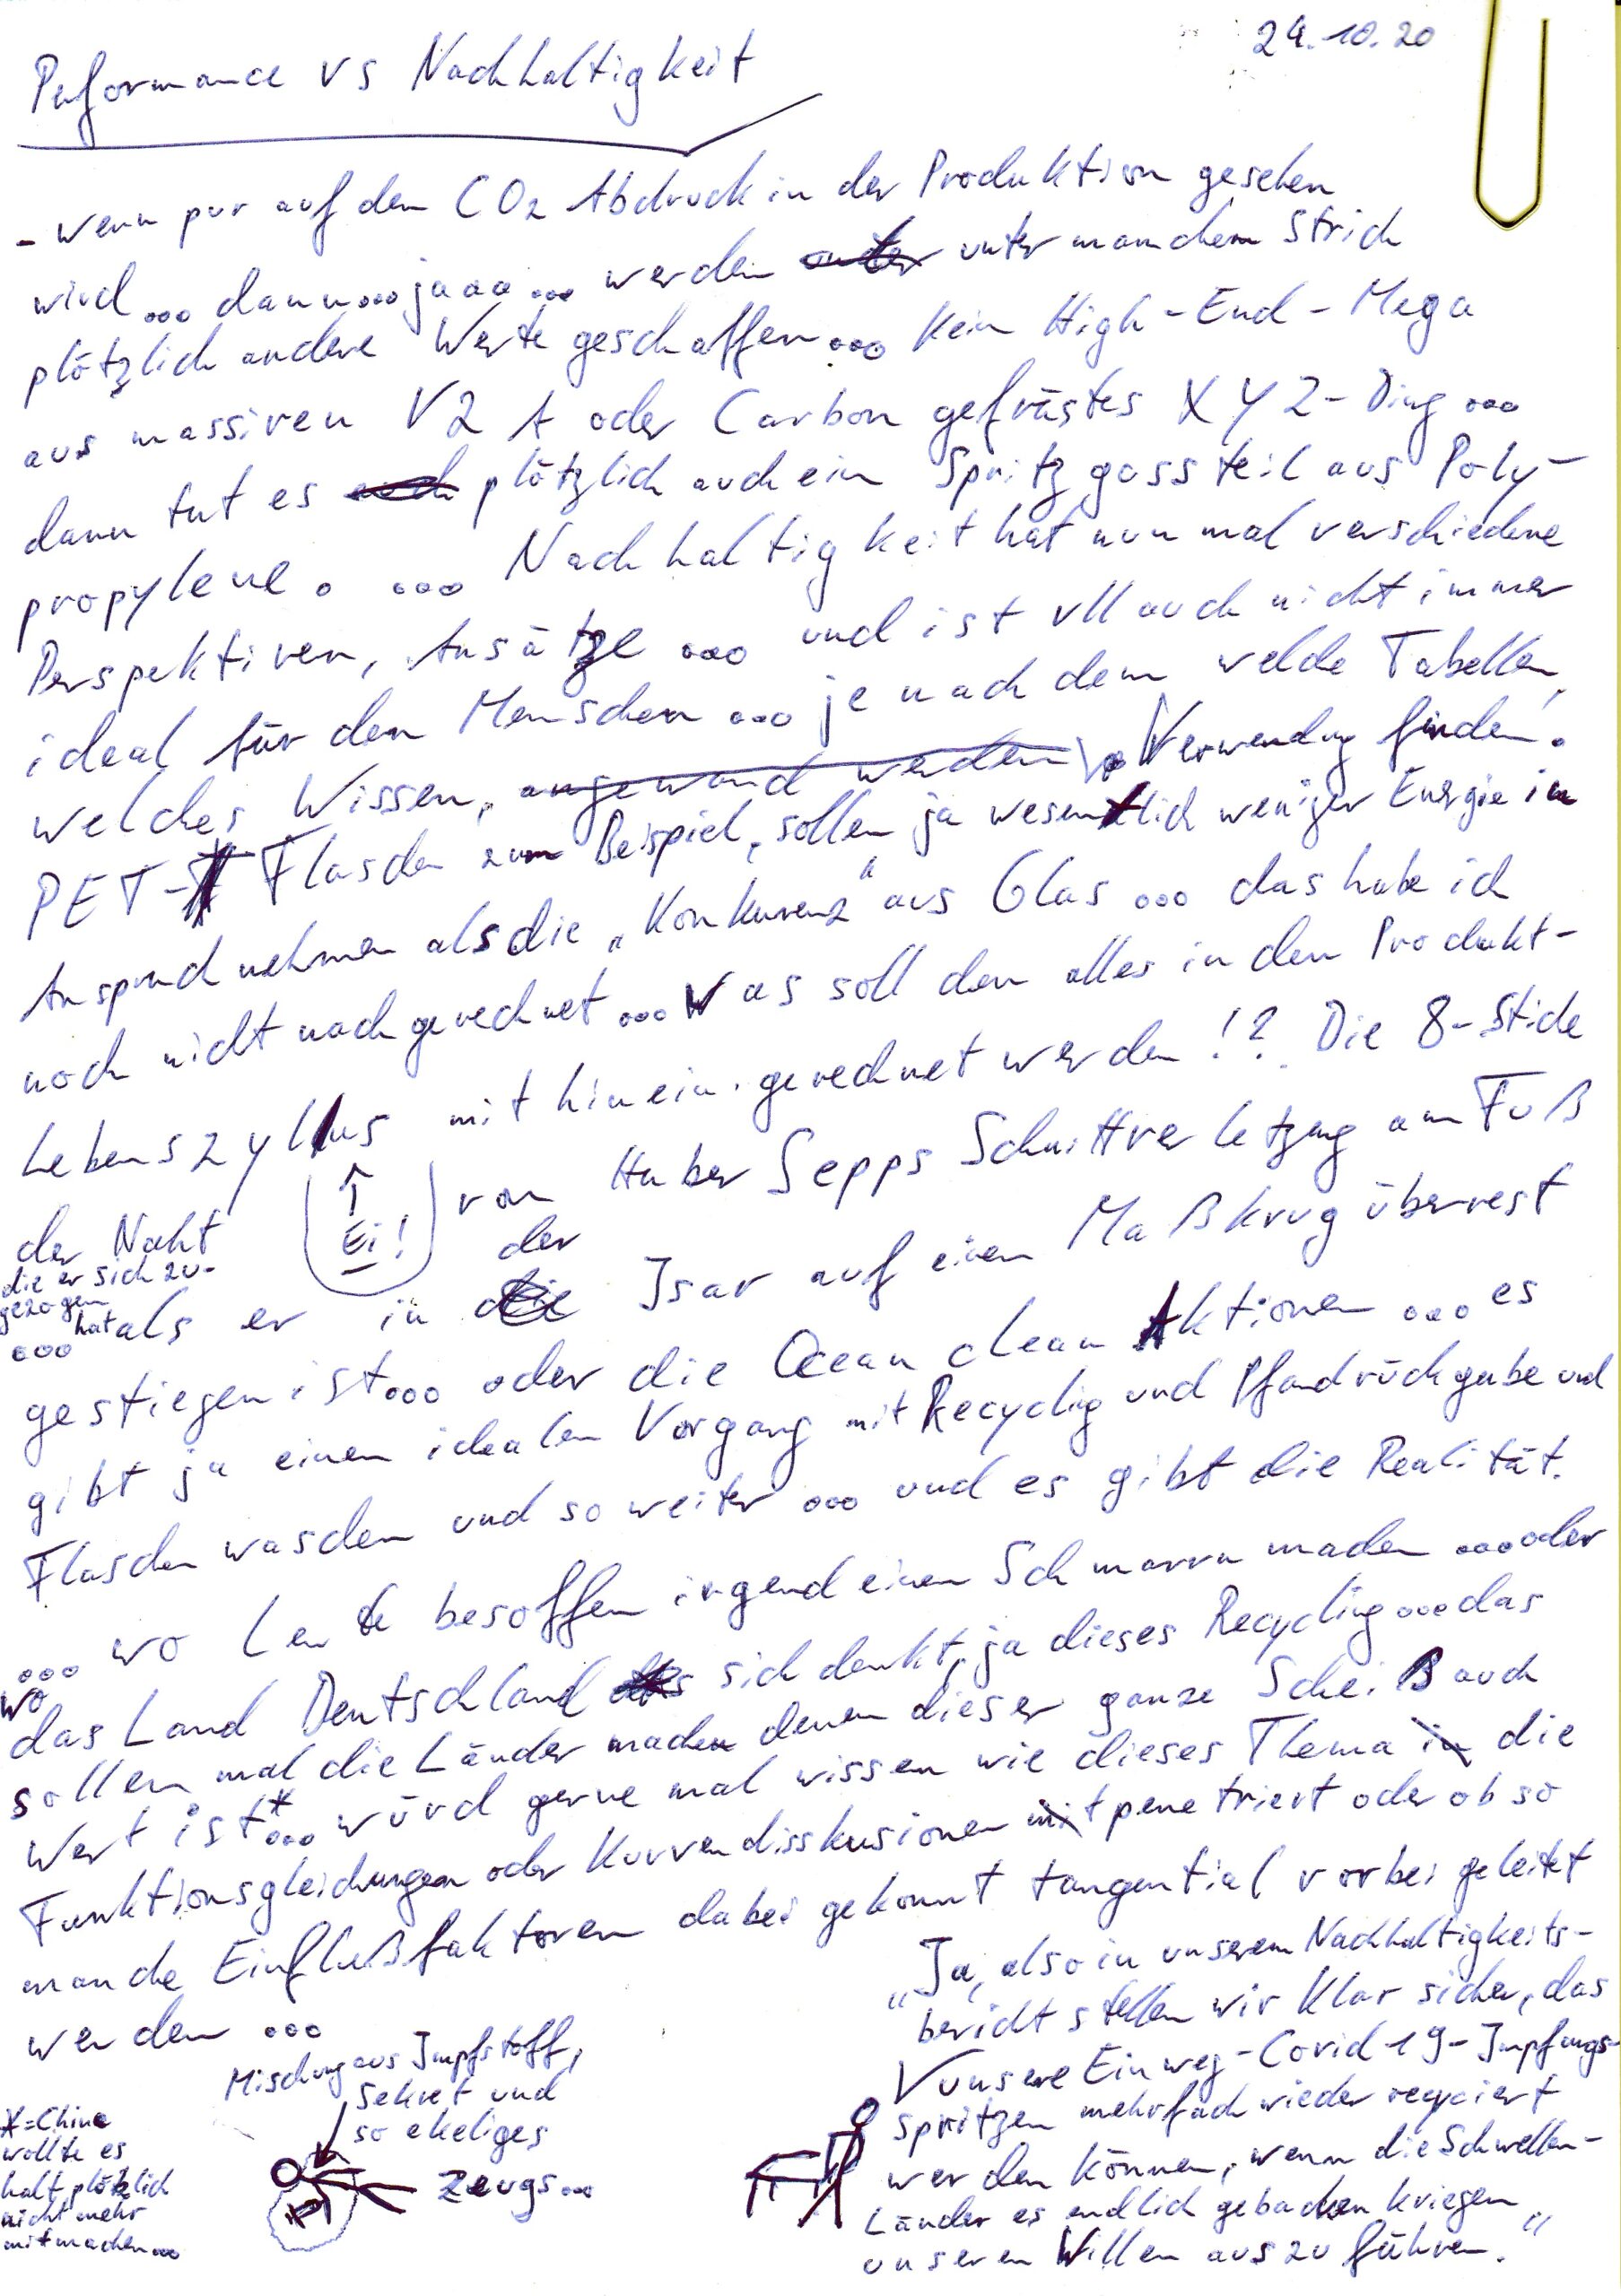 24.10.20
Performance vs Nachhaltigkeit
- wenn pur auf den CO2 Abdruck in der Produktion gesehen
wird ... dann ... jaaa ... werden unter manchem Strich
plötzlich andere Werte geschaffen ... kein High-End-Mega
aus massiven V2A oder Carbon gefrästes XYZ-Ding ...
dann tut es plötzlich auch ein Spritzgussteil aus Poly-
propylene. ... Nachhaltigkeit hat nun mal verschiedene
Perspektiven, Ansätze ... und ist vll auch nicht immer
ideal für den Menschen ... je nach dem welche Tabellen,
welches Wissen, angewand werden Verwendung finden.
PET-Flaschen zum Beispiel, sollen ja wesentlich weniger Energie in
Anspruch nehmen als die „Konkurenz" aus Glas ... das habe ich
noch nicht nachgerechnet ... Was soll den alles in den Produkt-
Lebenszyklus mit hinein gerechnet werden!? Die 8-Stiche
↑
Ei!
der Naht von Huber Sepps Schnittverletzung am Fuß
die er sich zu-
gezogen
hat
... als er in der Isar auf einen Maßkrug überrest
gestiegen ist ... oder die Ocean clean Aktionen ... es
gibt ja einen idealen Vorgang mit Recyclig und Pfandrückgabe und
Flaschen waschen und so weiter ... und es gibt die Realität.
... wo Leute besoffen irgend einen Schmarrn machen ... oder
wo
das Land Deutschland sich denkt, ja dieses Recycling ... das
sollen mal die Länder machen denen dieser ganze Scheiß auch
Wert ist* ... würd gerne mal wissen wie dieses Thema die
Funktionsgleichungen oder Kurvendisskusionen penetriert oder ob so
manche Einflußfaktoren dabei gekonnt tangential vorbei geleitet
werden ...
„Ja, also in unserem Nachhaltigkeits-
bericht stellen wir klar sicher, das
unsere Einweg-Covid-19-Impfungs-
spritzen mehrfach wieder recyciert
werden können, wenn die Schwellen-
Länder es endlich gebacken kriegen
unseren Willen aus zu führen."
Mischung aus Impfstoff,
Sekret und
so ekeliges
Zeugs ...
*=China
wollte es
halt plötzlich
nicht mehr
mitmachen ...